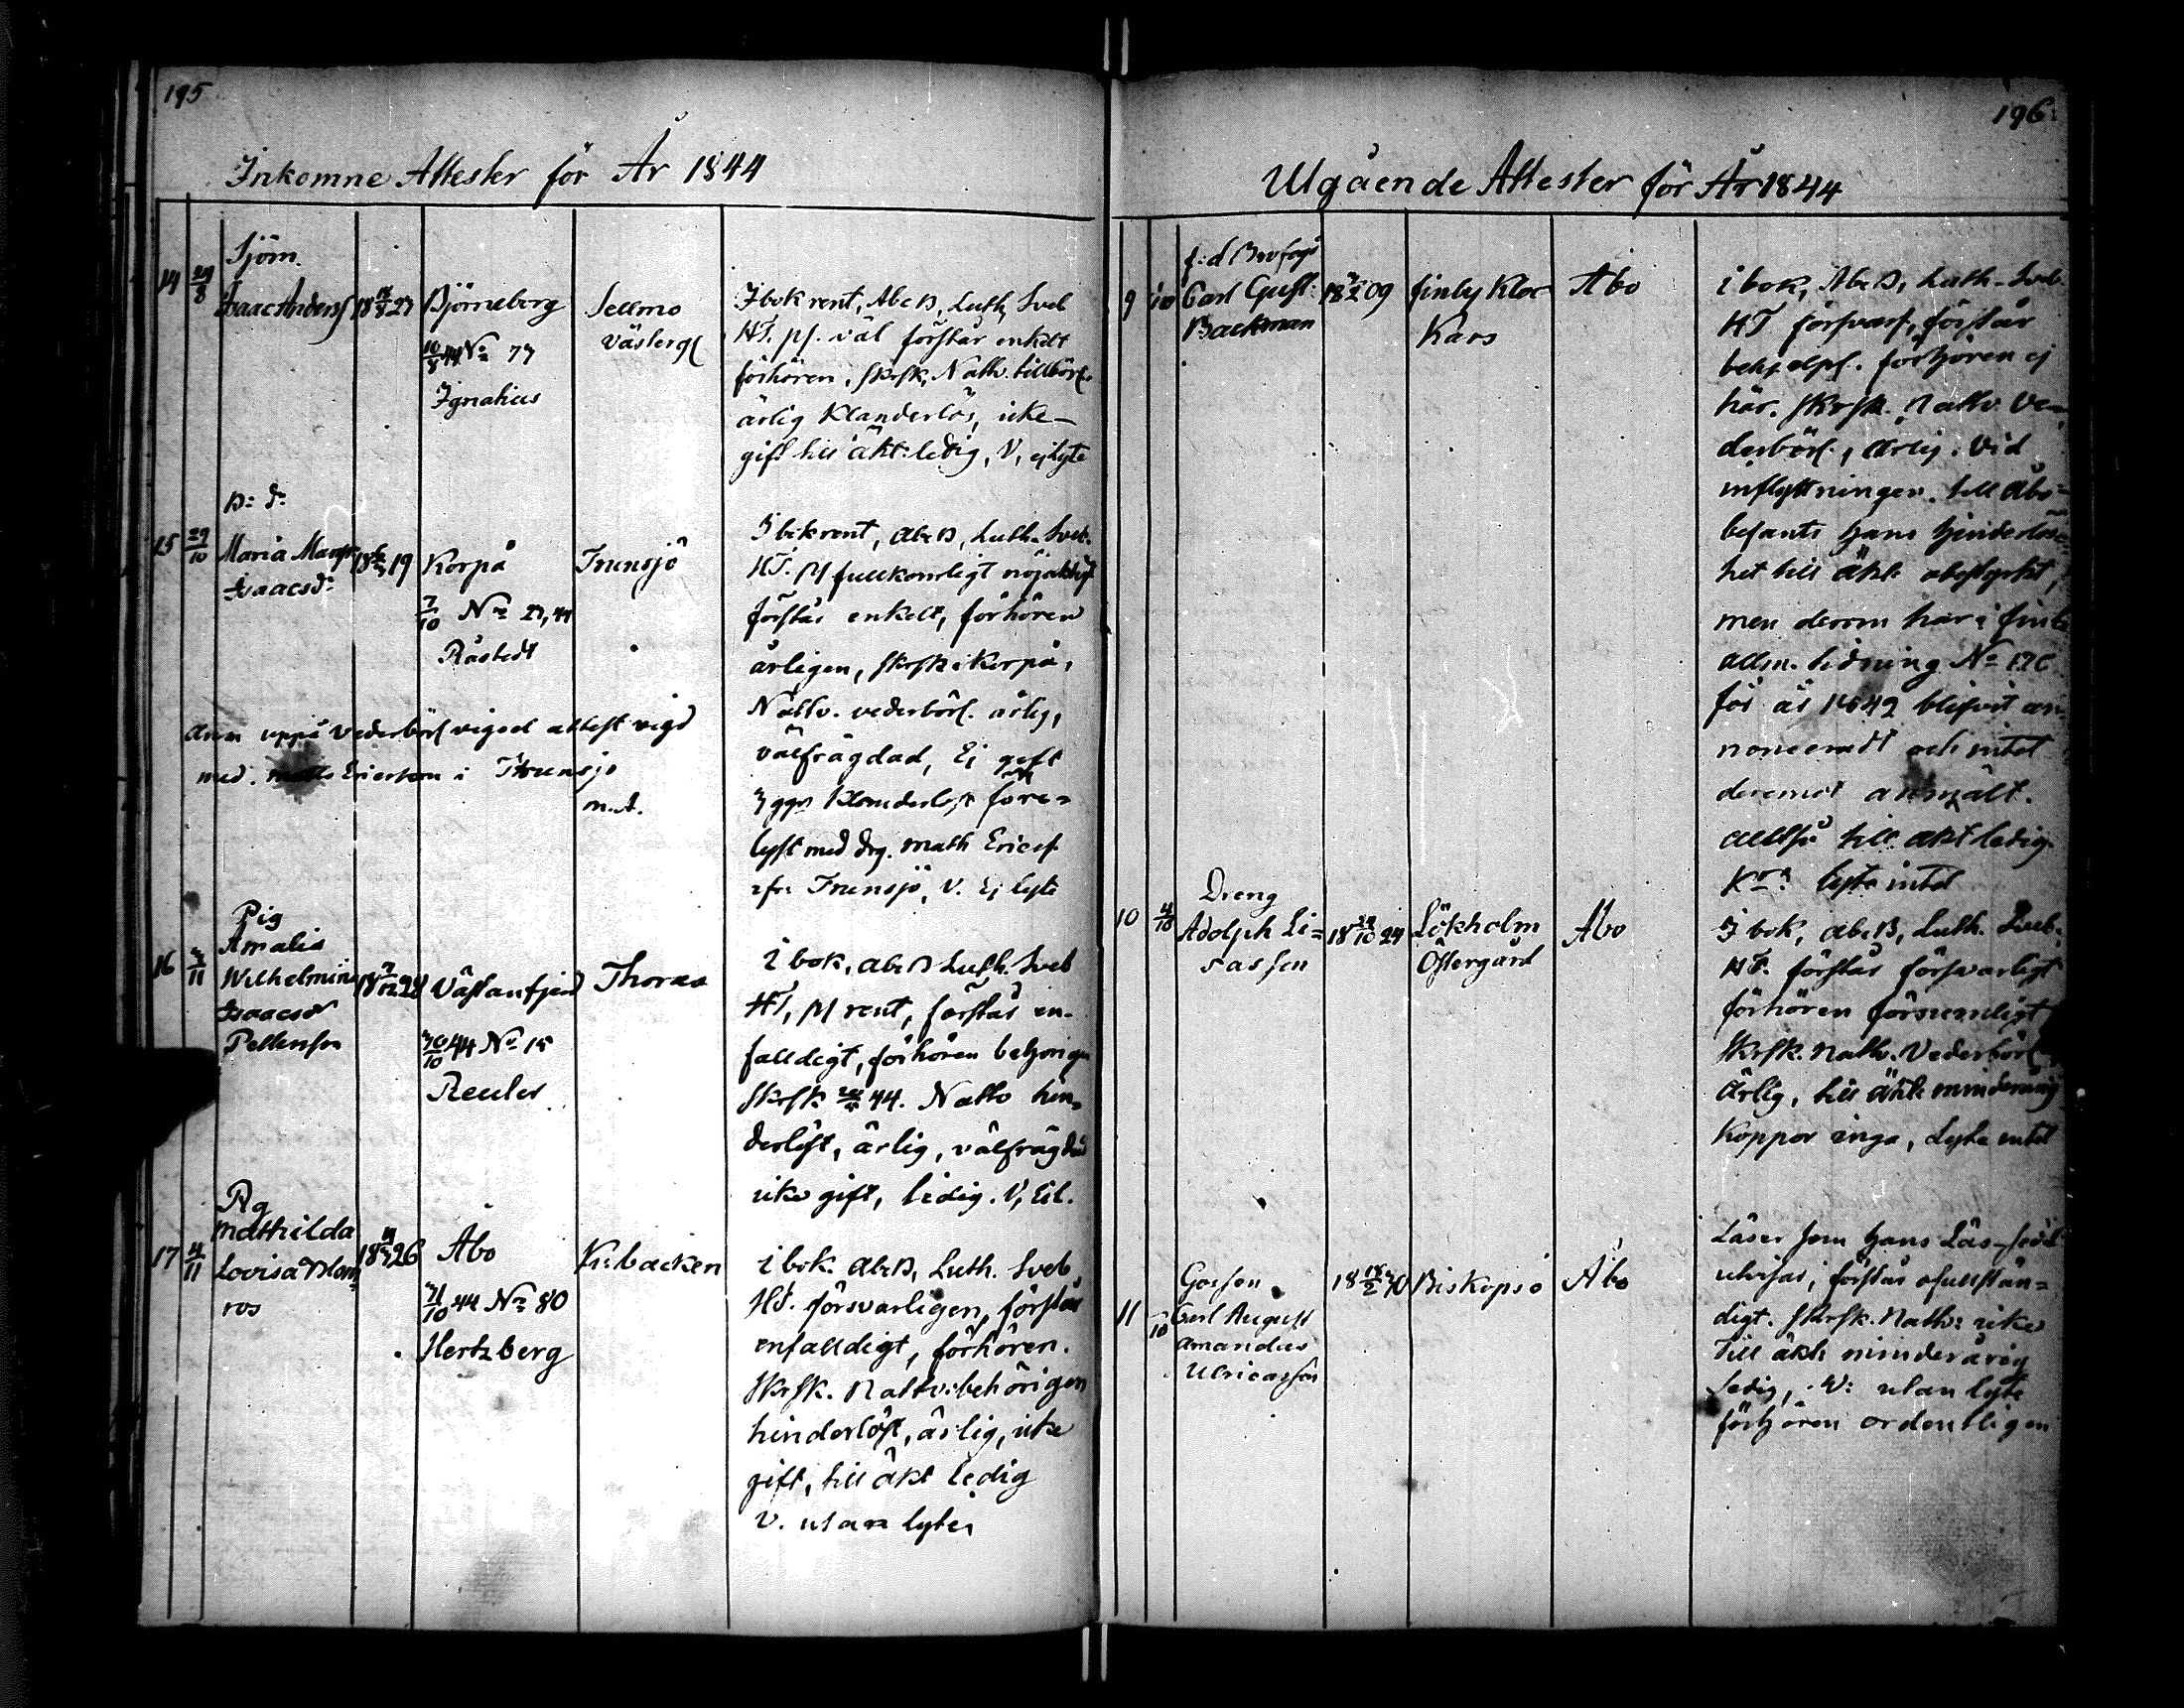 195
Inkomne Attester för År 1844
14 29/8
Sjöm.
Isaac Anderss
Björneborg
44 No 77
Ignatius
Sellmo
västergs
I bok rent, AbcB, Luth, Sveb
HT. ps. väl förstår enkelt
förhören, skrsk, Nattv. tillbörl.
ärlig klanderlös, icke
gift till äkt. ledig, V, ej lyte
B: d:
15 29/10
Maria Margr
Isaacsd:
Korpå
7/10 No 27, 44
Råstedt
Trunsjö
I bok rent, AbcB, Luth. Sveb.
HT. ps fullkomligt nöjaktigt
förstår enkelt, förhören
årligen, skrsk i Korpå,
Nattv. vederbörl. ärlig,
välfrägdad, Ej gift
3 ggr klanderlöst före=
lyst med drg. Math Ericss
ifr: Trunsjö, V. Ej lyte
Anm uppå vederbörl vigsel attest vigd
med. Matts Ericsson i Trunsjö
m.A.
16 /11
Pig
Amalia
Wilhelmina
Isaacsd
Pettersson
Västanfjerd
30/10 44 No 15
Reuter
Thoras
i bok, AbcB Luth. Sveb
HT, ps rent, förstår en-
falldigt, förhören behörigen
skrsk. 44. Nattv hin=
derlöst, ärlig, välfrägdad
icke gift, ledig. V, Ej l.
17 4/11
Pig
Mathilda
Lovisa Blom
ros
Åbo
31/10 44 No 80
Hertzberg
K:backen
i bok. AbcB, Luth. Sveb
HT. försvarligen, förstår
enfalldigt, förhören.
skrsk. Nattv: behörigen
hinderlöst, ärlig, icke
gift, till äkt ledig
V. utan lyte
196
Utgående Attester för År 1844
9
f:d Brofogd
Carl Gust.
Backman
Finby Kloc
Kars
Åbo
i bok, AbcB, Luth. Sveb.
HT försvarl, förstår
behjelpl. förhören ej
här. skrsk. Nattv. Ve=
derbörl, ärlig. Vid
inflyttningen till Åbo
befants hans hinderlös=
het till äkt. obestyrkt,
men derom har i Finl
allm. tidning No
för år 1842 blifvit an=
nonceradt och intet
deremot anmält.
alltså till äkt ledig.
lyte intet
10 /10
Dreng
Adolph Li=
sassen
Lökholm
Östergård
Åbo
I bok, AbcB, Luth. Sveb.
HT. förstår försvarligt
förhören försumligt
skrsk. Nattv. Vederbörl
ärlig, till äkt. minderårig
Koppor inga, Lyte intet
11 /10
Gossen
Carl August
Amandus
Ulricasson
Biskopsö
Åbo
Läser som hans Läs-sedel
utvisar, förstår ofullstän=
digt. skrsk. Nattv: icke
Till äkt minderårig
ledig, V: utan lyte
förhören ordentligen